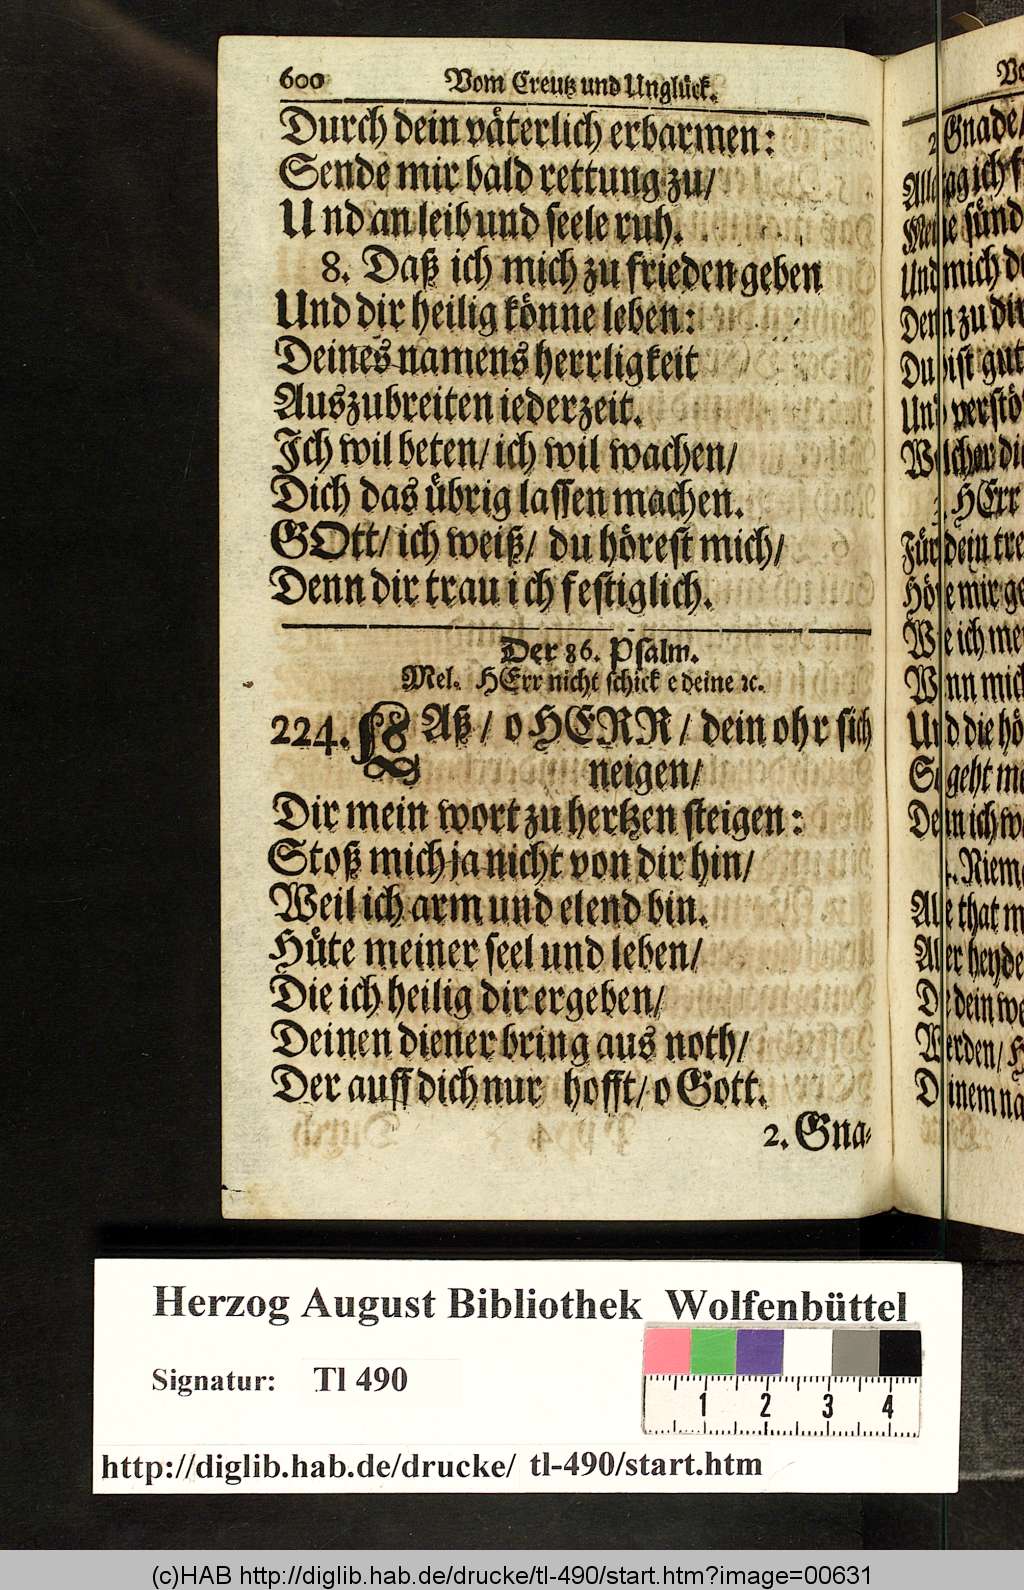 600 Vom Creutz und Unglück.
Durch dein väterlich erbarmen:
Sende mir bald rettung zu/
Und an leib und seele ruh.
8. Daß ich mich zu frieden geben
Und dir heilig könne leben:
Deines namens herrligkeit
Auszubreiten iederzeit.
Ich wil beten/ ich wil wachen/
Dich das übrig lassen machen.
GOtt/ ich weiß/ du hörest mich/
Denn dir trau ich festiglich.
Der 86. Psalm.
Mel. HErr nicht schicke deine ꝛc.
224. LAß / o HERR / dein ohr sich
neigen/
Dir mein wort zu hertzen steigen:
Stoß mich ja nicht von dir hin/
Weil ich arm und elend bin.
Hüte meiner seel und leben/
Die ich heilig dir ergeben/
Deinen diener bring aus noth/
Der auff dich nur hofft/ o Gott.
2. Gna-
Herzog August Bibliothek Wolfenbüttel
Signatur: Tl 490
1 2 3 4
http://diglib.hab.de/drucke/ tl-490/start.htm
(c)HAB http://diglib.hab.de/drucke/tl-490/start.htm?image=00631